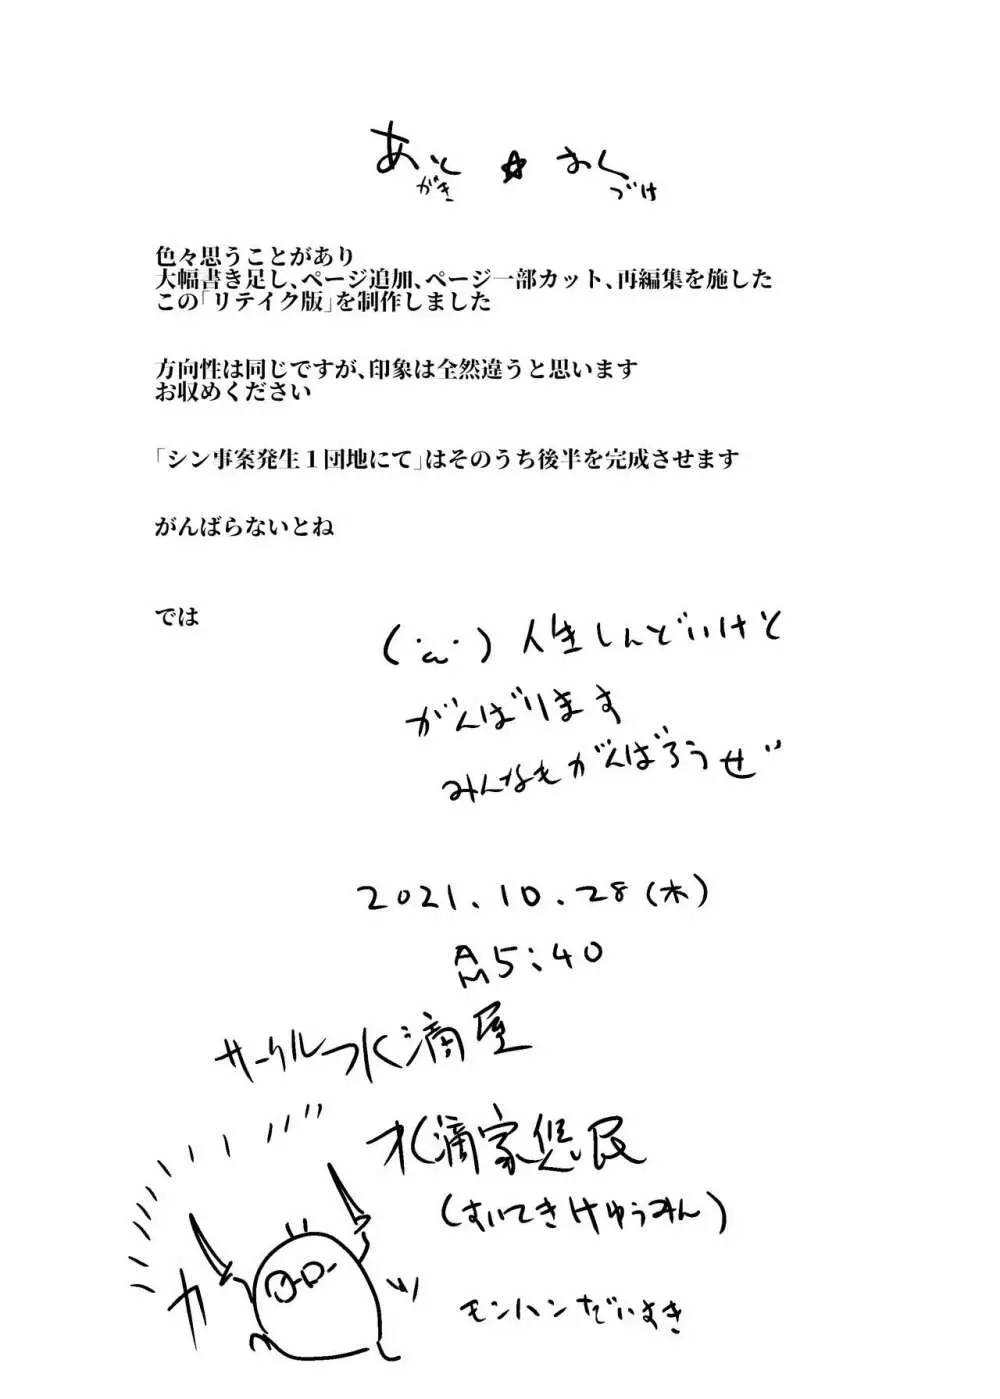 あとがき☆おくづけ
色々思うことがあり
大幅書き足し、ページ追加、ページ一部カット、再編集を施した
この「リテイク版」を制作しました
方向性は同じですが、印象は全然違うと思います
お収めください
「シン事案発生１団地にて」はそのうち後半を完成させます
がんばらないとね
では
(・a・)人生しんどいけど
がんばります
みんなもがんばろうぜ
2021.10.28(木)
AM5:40
サークル水滴屋
水滴家悠民
(すいてきけゆうみん)
モンハンだいすき
カッ